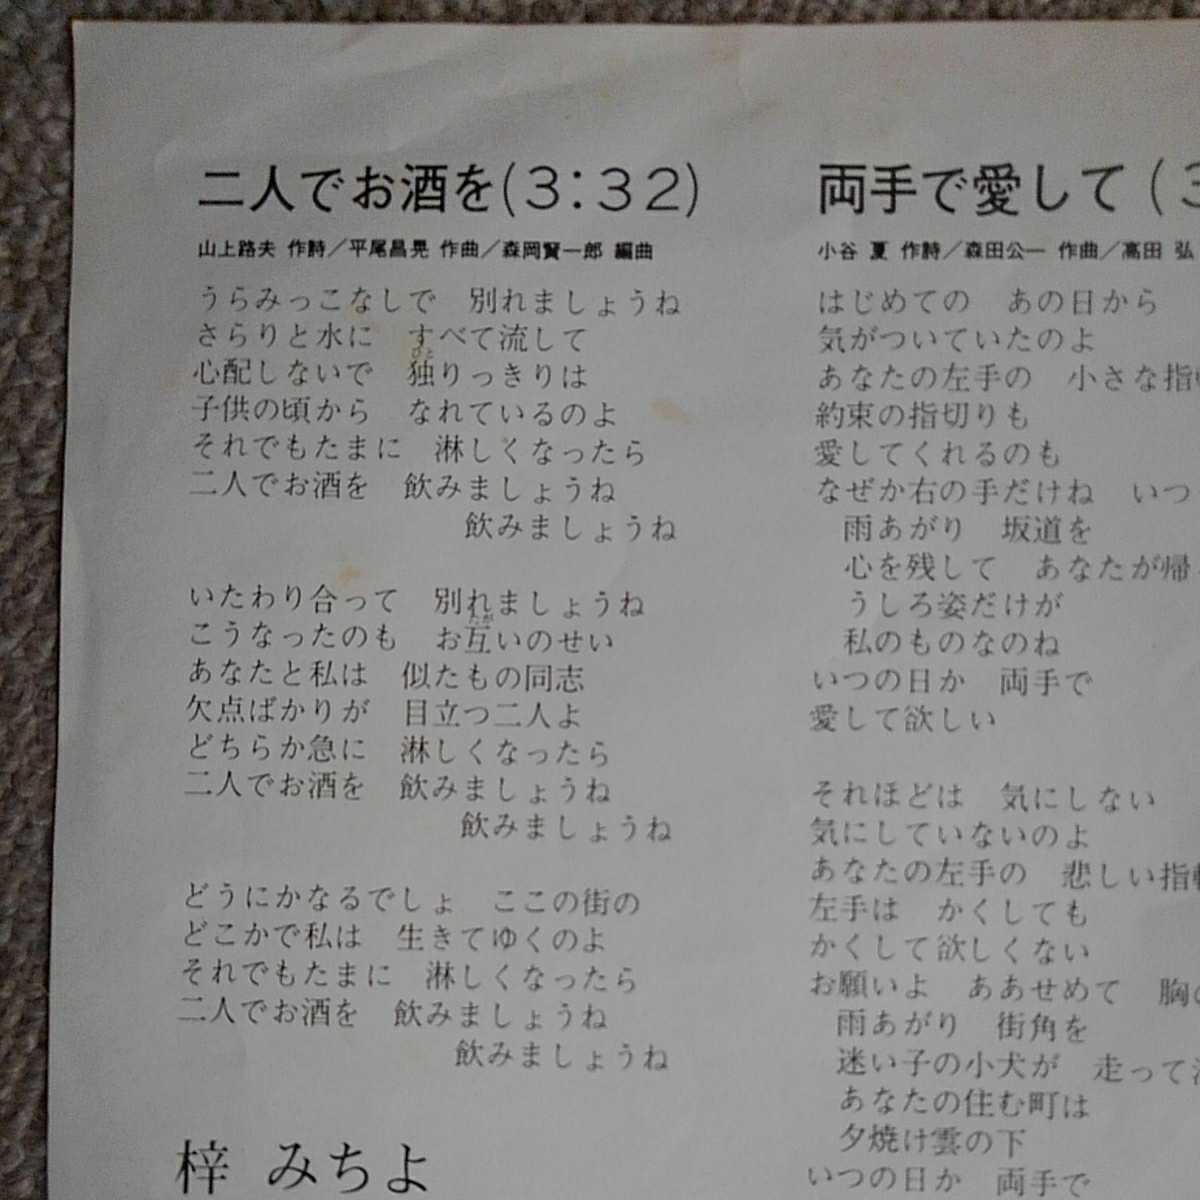 二人でお酒を(3:32)
山上路夫 作詩／平尾昌晃 作曲／森岡賢一郎 編曲
うらみっこなしで　別れましょうね
さらりと水に　すべて流して
心配しないで　独りっきりは
子供の頃から　なれているのよ
それでもたまに　淋しくなったら
二人でお酒を　飲みましょうね
飲みましょうね
いたわり合って　別れましょうね
こうなったのも　お互いのせい
あなたと私は　似たもの同志
欠点ばかりが　目立つ二人よ
どちらか急に　淋しくなったら
二人でお酒を　飲みましょうね
飲みましょうね
どうにかなるでしょ　ここの街の
どこかで私は　生きてゆくのよ
それでもたまに　淋しくなったら
二人でお酒を　飲みましょうね
飲みましょうね
梓 みちよ
両手で愛して(3
小谷 夏 作詩／森田公一 作曲／高田 弘
はじめての　あの日から
気がついていたのよ
あなたの左手の　小さな指
約束の指切りも
愛してくれるのも
なぜか右の手だけね　いつ
雨あがり　坂道を
心を残して　あなたが帰
うしろ姿だけが
私のものなのね
いつの日か　両手で
愛して欲しい
それほどは　気にしない
気にしていないのよ
あなたの左手の　悲しい指
左手は　かくしても
かくして欲しくない
お願いよ　ああせめて　胸
雨あがり　街角を
迷い子の小犬が　走って
あなたの住む町は
夕焼け雲の下
いつの日か　両手で